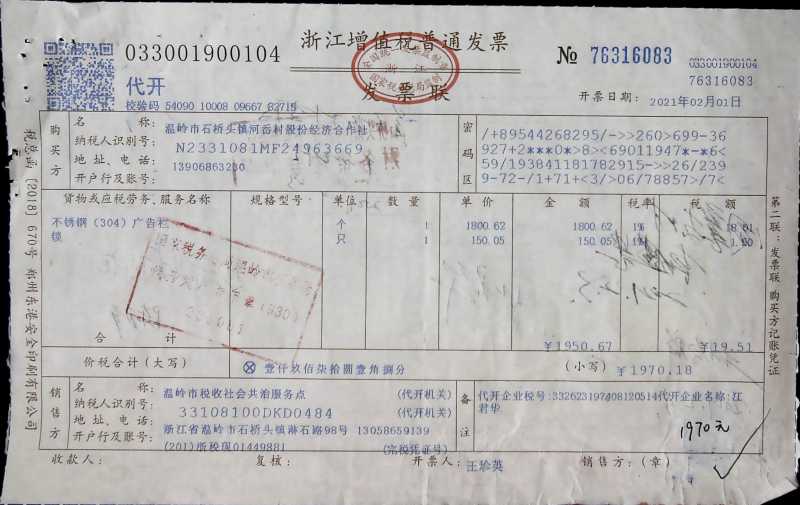 033001900104
浙江增值税普通发票
发票联
№ 76316083
033001900104
76316083
代开
校验码 54090 10008 09667 62715
开票日期: 2021年02月01日
购买方
名 称: 温岭市石桥头镇河西村股份经济合作社
纳税人识别号: N2331081MF24963669
地址、电话: 13906863236
开户行及账号:
密码区
/+89544268295/->>260>699-36
927+2***0*>8><69011947*-*6<
59/193841181782915->>26/239
9-72-/1+71+<3/>06/78857>/7<
货物或应税劳务、服务名称 规格型号 单位 数量 单价 金额 税率 税额
不锈钢（304）广告栏 个 1 1800.62 1800.62 1% 18.01
锁 只 1 150.05 150.05 1% 1.50
合 计 ￥1950.67 ￥19.51
价税合计（大写） ⊗ 壹仟玖佰柒拾圆壹角捌分 （小写） ￥1970.18
销售方
名 称: 温岭市税收社会共治服务点 (代开机关)
纳税人识别号: 33108100DKD0484 (代开机关)
地址、电话: 浙江省温岭市石桥头镇淋石路98号 13058659139
开户行及账号: (201)浙税现01449881 (完税凭证号)
备注
代开企业税号:332623197408120514代开企业名称:江
君华
1970元
收款人: 复核: 开票人: 王珍英 销售方:（章）
税总函〔2018〕670号 郑州东港安全印刷有限公司
第二联：发票联 购买方记账凭证